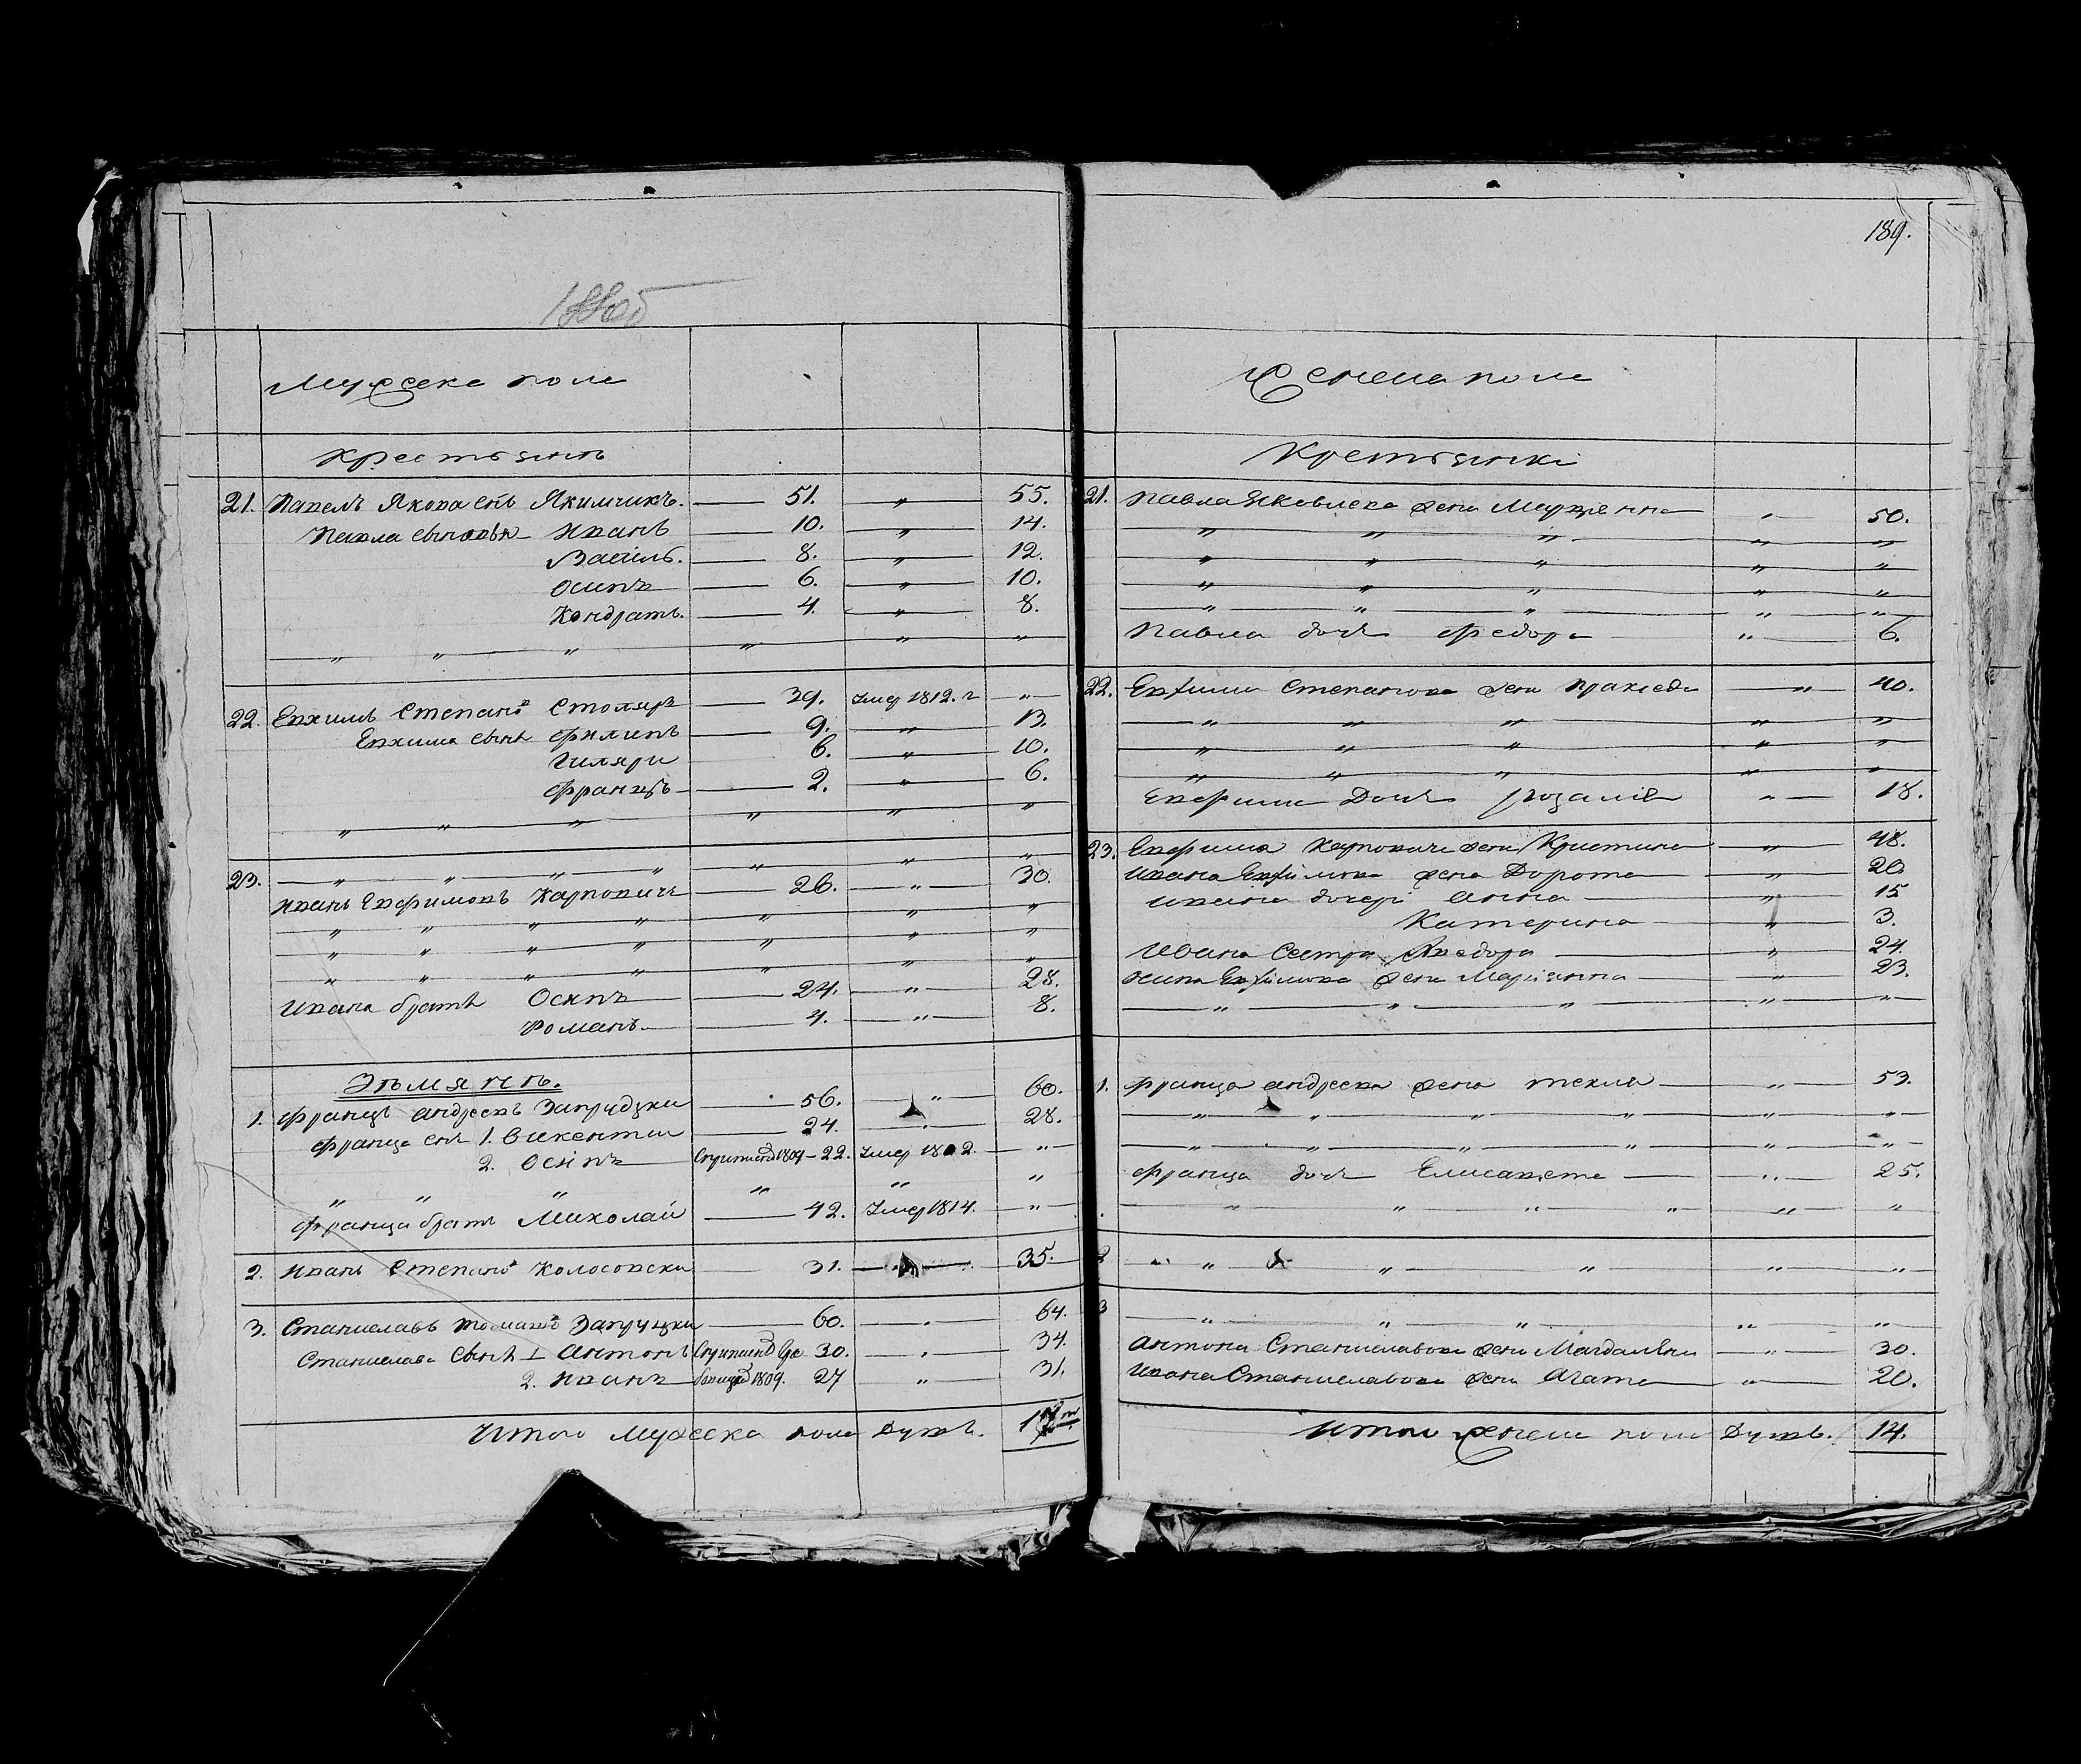 188об
Мужеска пола
Крестьянъ
21. Павелъ Якова сынъ Якимчикъ. 51. „ 55.
Павла сыновья Иванъ 10. „ 14.
Василь. 8. „ 12.
Осипъ 6. „ 10.
Кондратъ. 4. „ 8.
„ „ „ „ „ „
22. Евхимъ Степановъ Столяръ 39. Умер 1812. г „
Евхима сынъ Филипъ 9. „ 13.
Гиляри 6. „ 10.
Францъ 2. „ 6.
„ „ „ „ „ „
23. „ „ „ „ „ „ „
Иванъ Евфимовъ Карповичъ 26. „ 30.
„ „ „ „ „ „ „
„ „ „ „ „ „ „
„ „ „ „ „ „ „
Ивана братъ Осипъ 24. „ 28.
Романъ. 4. „ 8.
Земянъ.
1. Францъ Андреевъ Запрудзки 56. „ 60.
Франца сын 1. Викентии 24. „ 28.
2. Осипъ 1809 – 22. Умер 1812. „
„ „ „ „ „ „
Франца братъ Миколай 42. Умер 1814. „
2. Иванъ Степановъ Колосовски 31. 35.
3. Станиславъ Томашов Запруцки 60. „ 64.
Станислава сынъ 1 Антонъ 30. „ 34.
2. Иванъ 1809. 27 „ 31.
Итого мужеска пола душъ.
189.
Женска пола
Крестянки
21. Павла Яковлева жена Марянна „ 50.
„ „ „ „ „
„ „ „ „ „
„ „ „ „ „
„ „ „ „ „
Павла дочь Федора „ 6.
22. Евхима Степанова жена Пракседа „ 40.
„ „ „ „ „
„ „ „ „ „
„ „ „ „ „
Евфима дочь Розалия „ 18.
23. Евфима Карповича жена Кристина „ 48.
Ивана Евфимова жена Дорота „ 20
Ивана дочери Анна „ 15
Катерина „ 3.
Ивана сестра Федора „ 24.
Осипа Евфимова жена Марианна „ 23.
„ „ „ „ „
1. Франца Андреева жена Текля „ 53.
„ „ „ „ „ „
„ „ „ „ „ „
Франца дочь Елисавета „ 25.
„ „ „ „ „ „
2 „ „ „ „ „ „
3 „ „ „ „ „
Антона Станиславова жена Магдалена „ 30.
Ивана Станиславова жена Агата „ 20.
Итого женска пола душъ. 14.